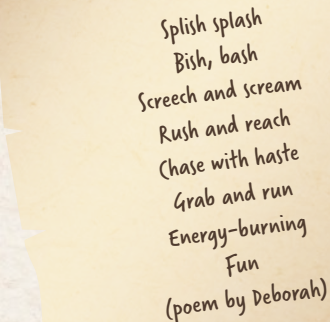 Splish splash
Bish, bash
Screech and scream
Rush and reach
Chase with haste
Grab and run
Energy-burning
Fun
(poem by Deborah)